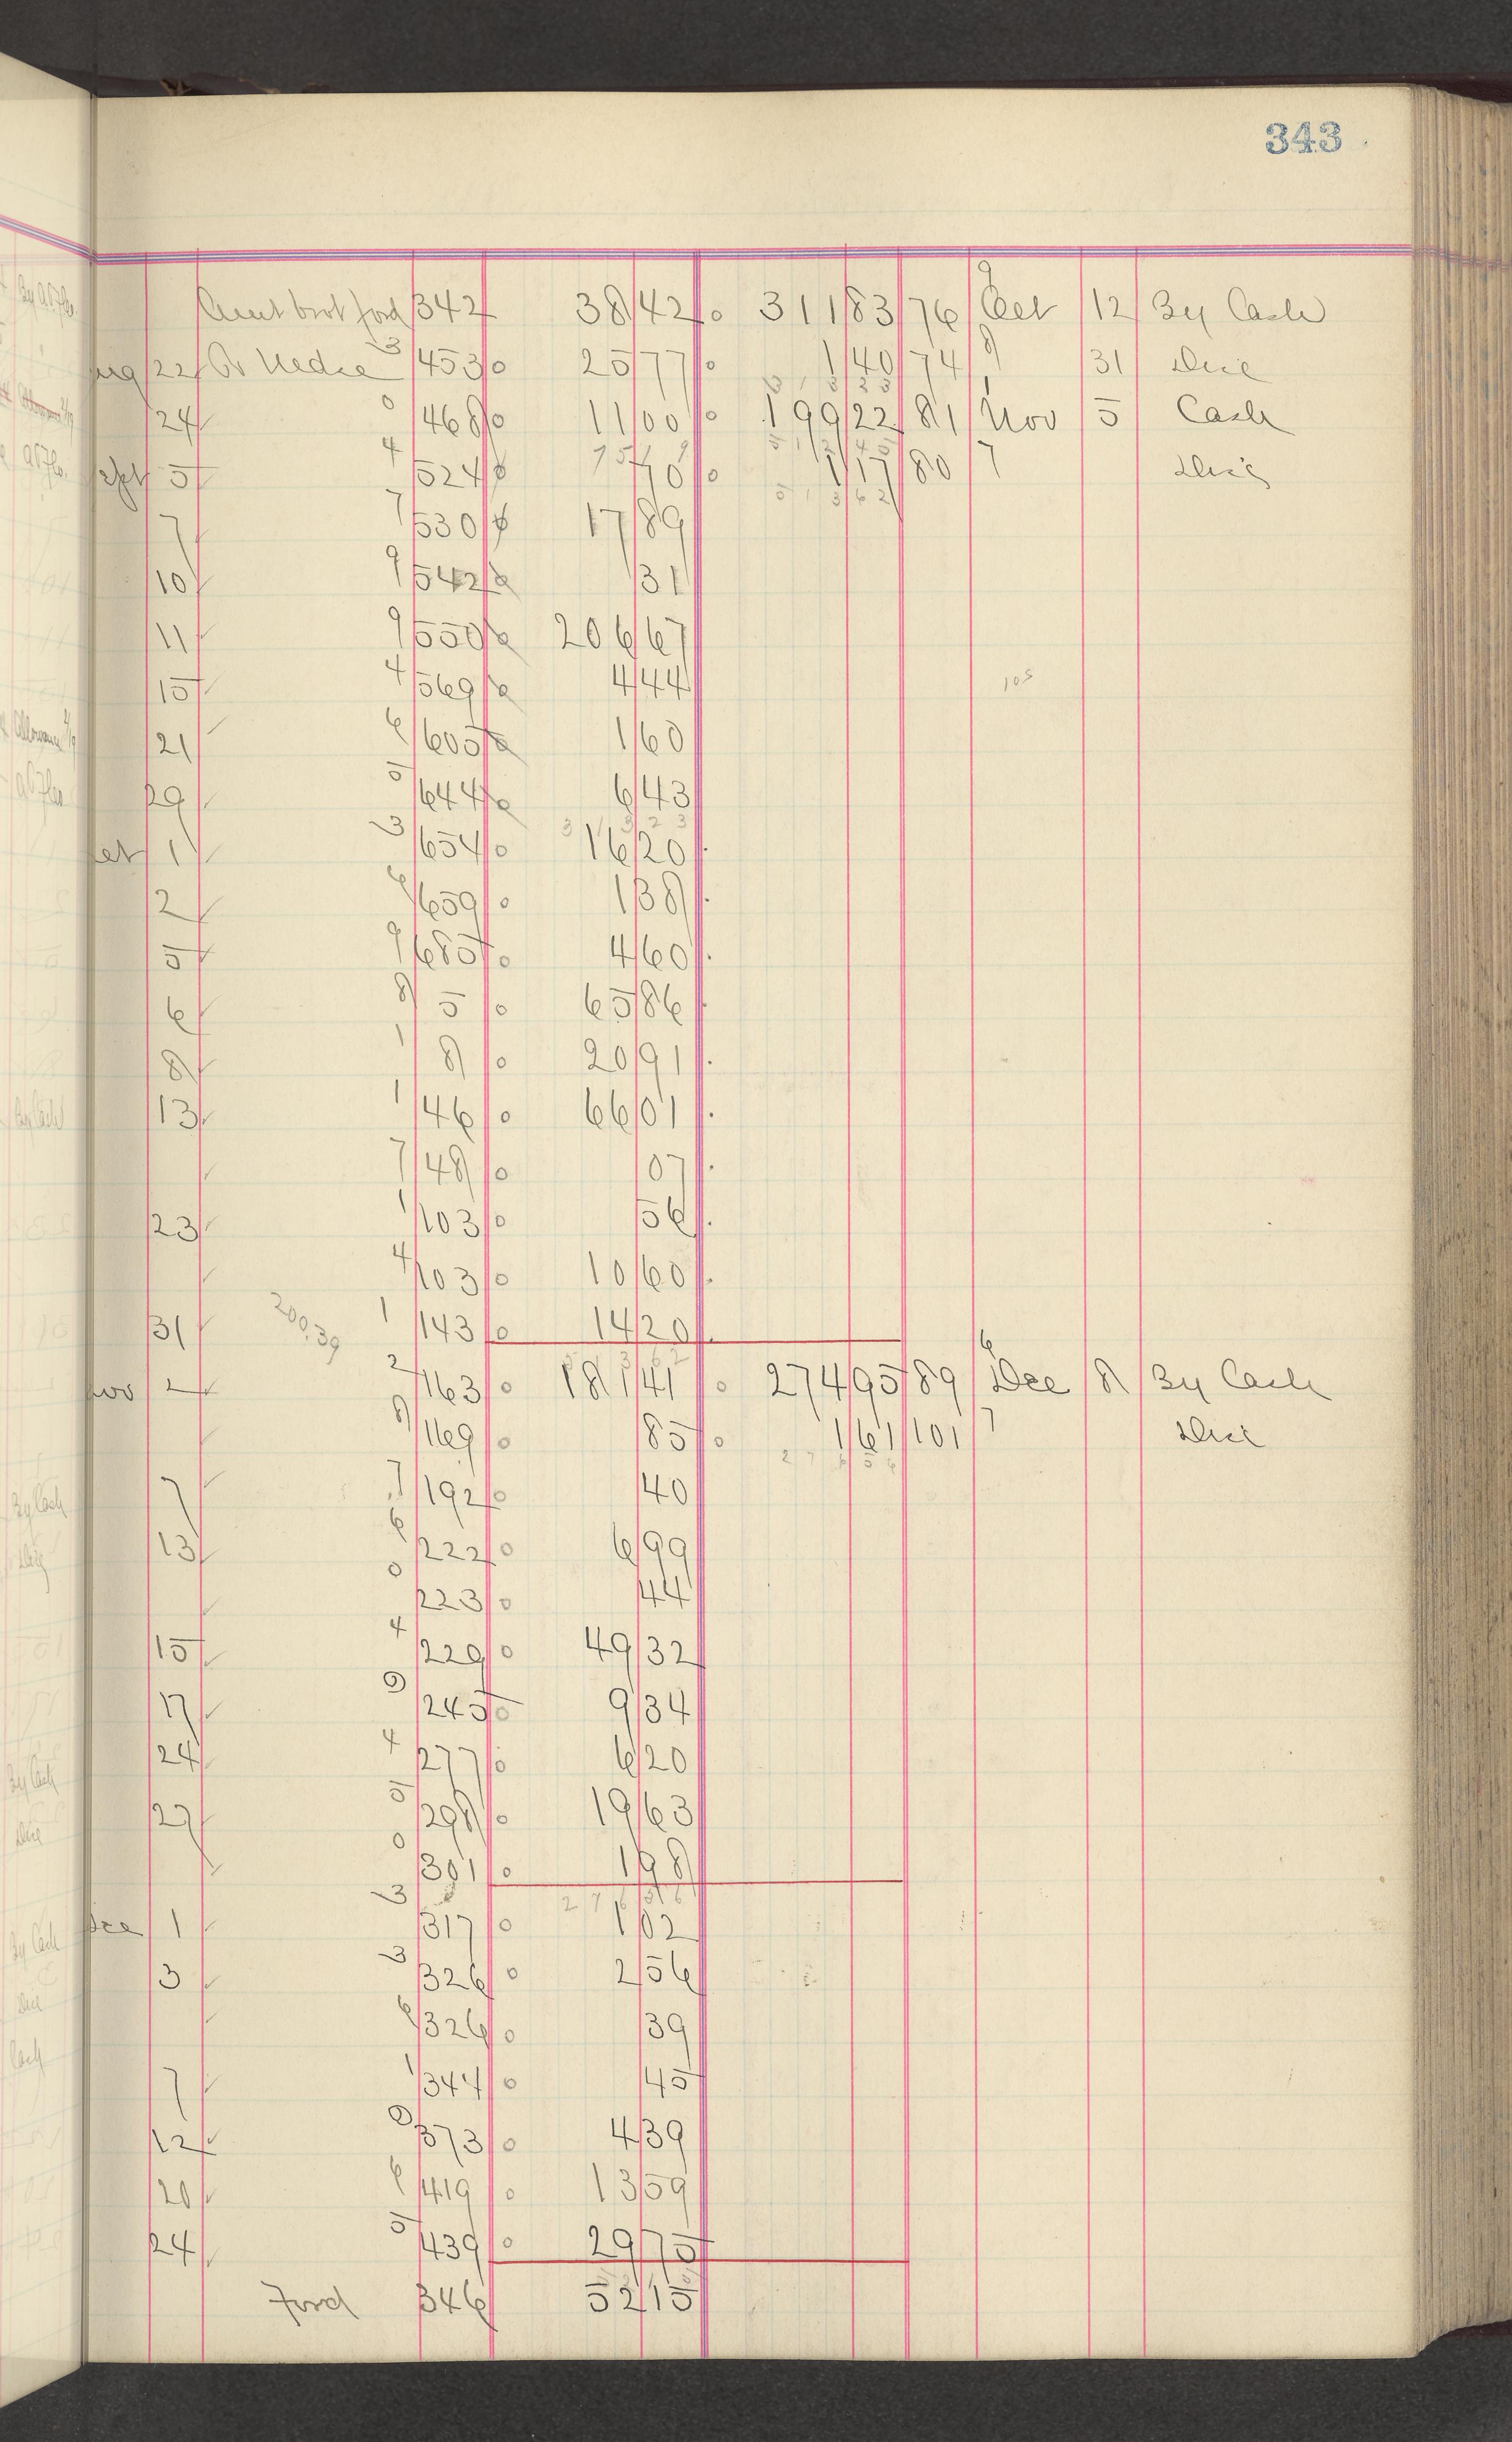 343
Amt brot ford 342 38 42 311 83 76 Oct 12 By Cash
Aug 22 To Mdse 3 453 25 77 1 40 74 31 Disc
24 0 468 11 00 199 22 81 Nov 5 Cash
Sept 5 4 524 70 1 17 80 7 Disc
7 7 530 17 89
10 9 542 31
11 9 550 206 67
15 4 569 4 44
105
21 6 605 1 60
29 5 644 6 43
Oct 1 3 654 16 20
2 6 659 1 38
5 9 685 4 60
6 8 5 65 86
8 1 8 20 91
13 1 46 66 01
7 48 07
23 1 103 56
4 103 10 60
31 200.39 1 143 14 20
Nov 2 2 163 181 41 274 95 89 6 Dec 8 By Cash
8 169 85 1 61 101 7 Disc
7 7 192 40
13 6 222 6 99
0 223 44
15 4 229 49 32
17 9 245 9 34
24 4 277 6 20
27 5 298 19 63
0 301 1 98
27656
Dec 1 3 317 1 02
3 3 326 2 56
6 326 39
7 1 344 45
12 0 373 4 39
20 6 419 13 59
24 5 439 29 75
Ford 346 52 15